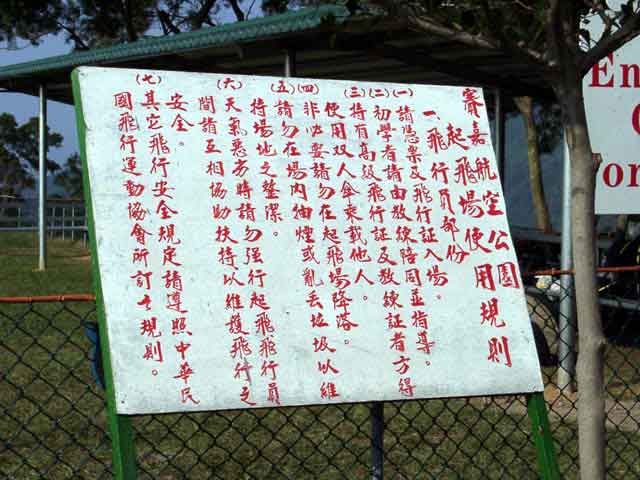 賽嘉航空公園
起飛場使用規則
一、飛行員部份
(一)請憑票及飛行証入場。
(二)初學者請由教練陪同並指導。
(三)持有高級飛行証及教練証者方得
使用双人傘乘載他人。
(四)非必要請勿在起飛場降落。
(五)請勿在場內抽煙或亂丟垃圾以維
持場地之整潔。
(六)天氣惡劣時請勿強行起飛飛行員
間請互相協助扶持以維護飛行之
安全。
(七)其它飛行安全規定請遵照中華民
國飛行運動協會所訂之規則。
En